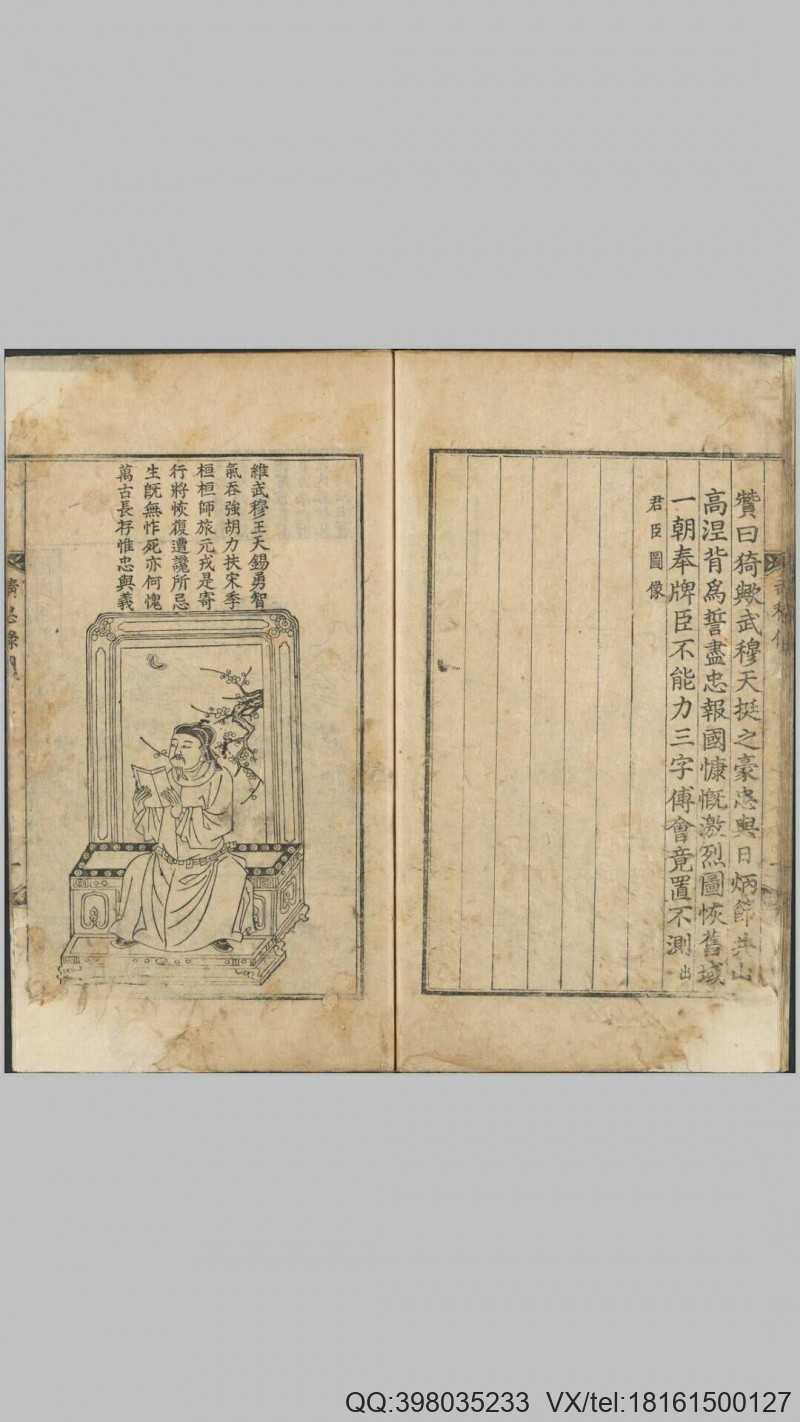 贊曰猗歟武穆天挺之豪忠與日炳節共山
高涅背爲誓盡忠報國慷慨激烈圖恢舊域
一朝奉牌臣不能力三字傅會竟置不測出
君臣圖像
維武穆王天錫勇智
氣吞強胡力扶宋季
桓桓師旅元戎是寄
行將恢復遭讒所忌
生旣無怍死亦何愧
萬古長存惟忠與義
QQ:398035233 VX/tel:18161500127